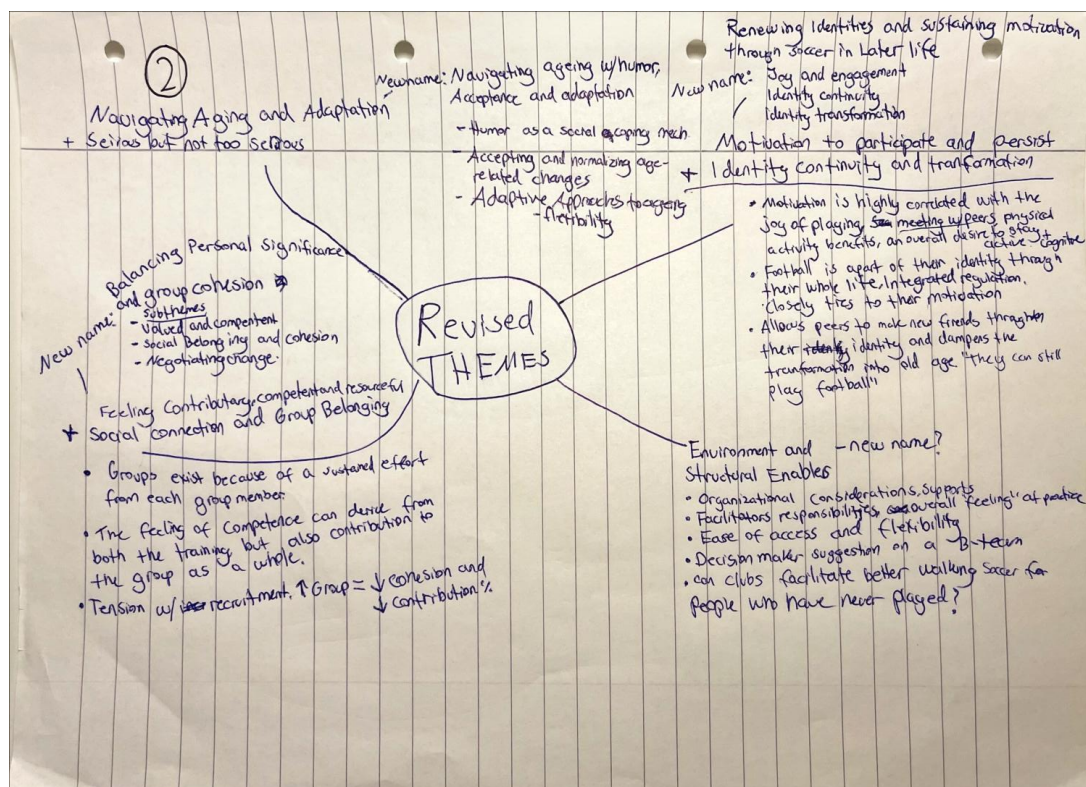 ②
Navigating Aging and Adaptation
+ Seirous but not too serious
New name: Navigating ageing w/humor,
Acceptance and adaptation
- Humor as a social coping mech.
- Accepting and normalizing age-
related changes
- Adaptive Approaches to ageing
- flexibility
Renewing Identities and sustaining motivation
through soccer in Later life
New name: Joy and engagement
Identity continuity
identity transformation
Motivation to participate and persist
+ Identity continuity and tranformation
• Motivation is highly correlated with the
joy of playing, meeting w/peers, physical
activity benefits, an overall desire to stay
active + cognitive
• Football is apart of their identity through
their whole life. Integrated regulation,
closely ties to their motivation
• Allows peers to make new firends through
their identity and dampers the
tranformation into old age "they can still
play football"
Revised
THEMES
New name: Balancing Personal significance
and group cohesion
subthemes
- Valued and compentent
- Social Belonging and cohesion
- Negotiating change.
Feeling Contributary, competent and resourceful
+ Social connection and Group Belonging
• Groups exist because of a sustained effort
from each group member.
• The feeling of competence can derive from
both the training but also contribution to
the group as a whole.
• Tension w/ recruitment. ↑ Group = ↓ cohesion and
↓ contribution %
Environment and - new name?
Structural Enables
• Organizational considerations, supports
• Facilitators responsibilities, overall feeling" at practice
• Ease of access and flexibility
• Decision maker suggestion on a B-team
• can clubs facilitate better walking soccer for
people who have never played?